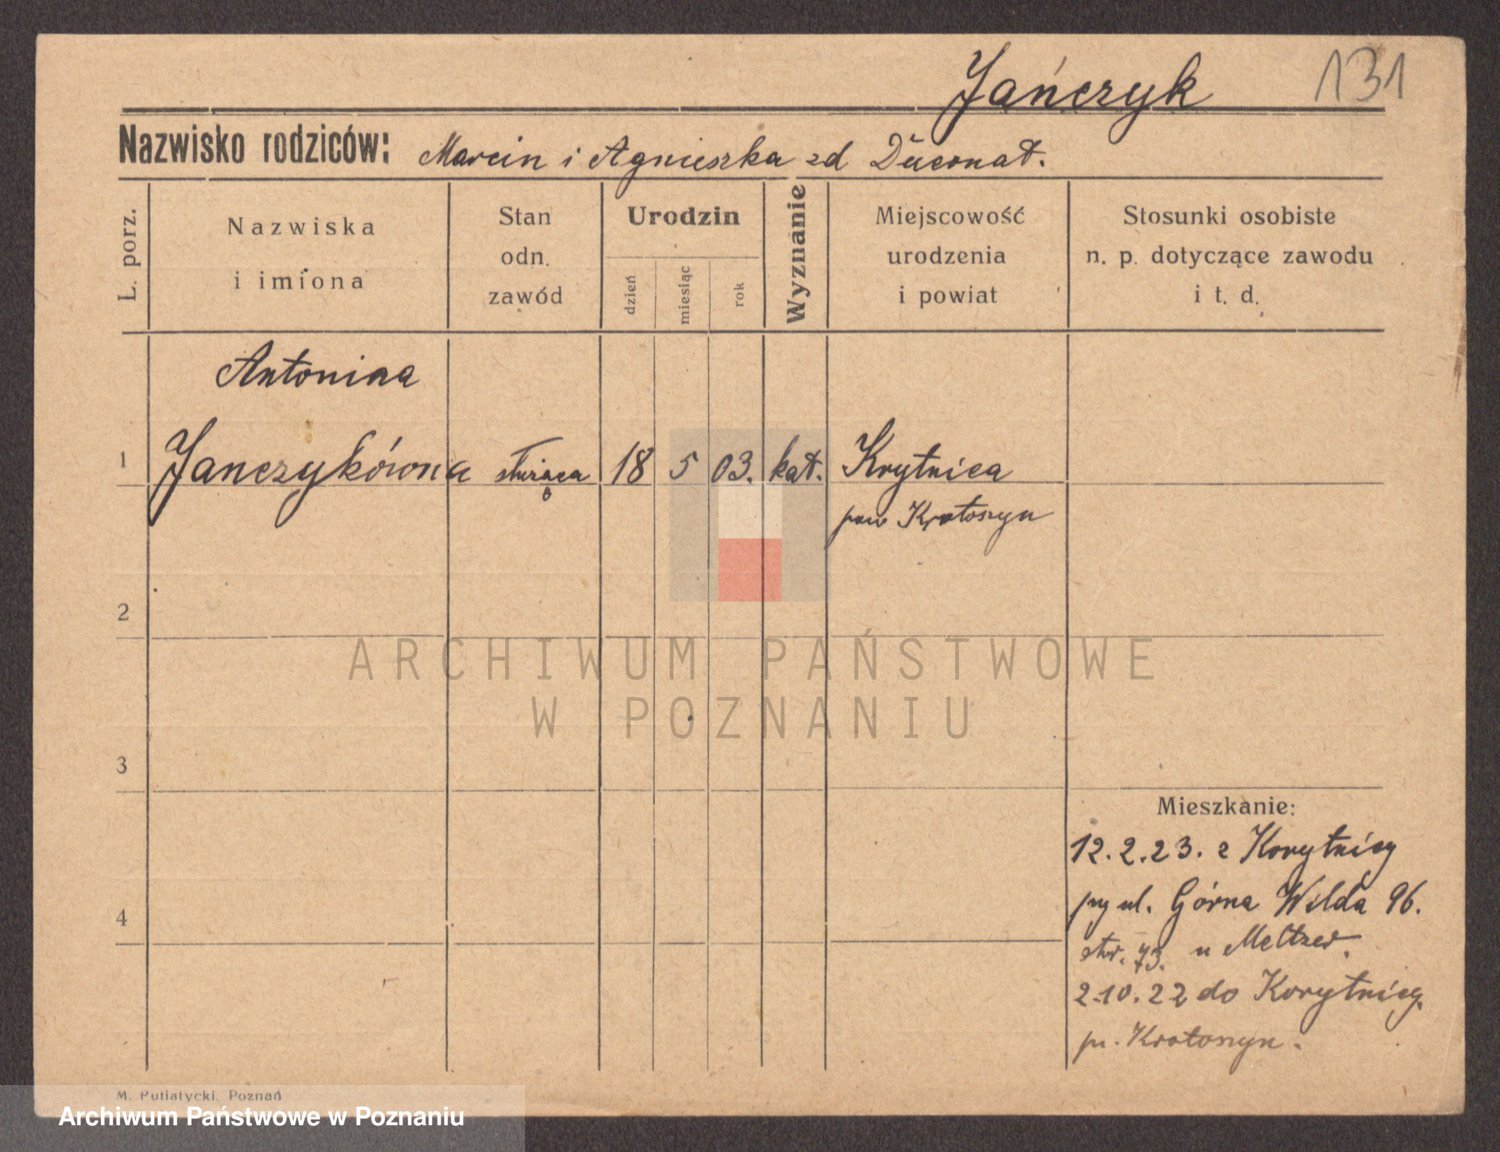 Jańczyk 131
Nazwisko rodziców: Marcin i Agnieszka zd
L. porz.
Nazwiska
i imiona
Stan
odn.
zawód
Urodzin
dzień
miesiąc
rok
Wyznanie
Miejscowość
urodzenia
i powiat
Stosunki osobiste
n. p. dotyczące zawodu
i t. d.
Antonina
1 Janczykówna służąca 18 5 03. kat. Krytnica
pow Krotoszyn
2
ARCHIWUM PAŃSTWOWE
W POZNANIU
3
Mieszkanie:
12.2.23. z Korytnicy
4
przy ul. Górna Wilda 96.
str. 73. u Meltzer.
2.10.22 do Korytnicy.
p. Krotoszyn.
M. Putiatycki. Poznań
Archiwum Państwowe w Poznaniu